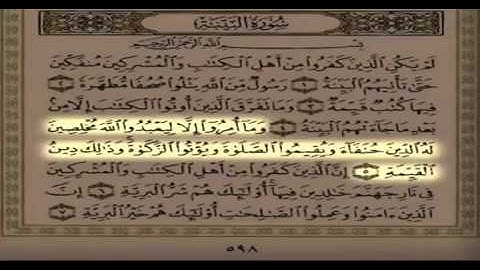 سُورَةُ البَيِّنَةِ
بِسْمِ اللَّهِ الرَّحْمَٰنِ الرَّحِيمِ
لَمْ يَكُنِ الَّذِينَ كَفَرُوا مِنْ أَهْلِ الْكِتَابِ وَالْمُشْرِكِينَ مُنفَكِّينَ
حَتَّىٰ تَأْتِيَهُمُ الْبَيِّنَةُ ١ رَسُولٌ مِّنَ اللَّهِ يَتْلُوا صُحُفًا مُّطَهَّرَةً ٢
فِيهَا كُتُبٌ قَيِّمَةٌ ٣ وَمَا تَفَرَّقَ الَّذِينَ أُوتُوا الْكِتَابَ إِلَّا مِنْ
بَعْدِ مَا جَاءَتْهُمُ الْبَيِّنَةُ ٤ وَمَا أُمِرُوا إِلَّا لِيَعْبُدُوا اللَّهَ مُخْلِصِينَ
لَهُ الدِّينَ حُنَفَاءَ وَيُقِيمُوا الصَّلَوٰةَ وَيُؤْتُوا الزَّكَوٰةَ وَذَٰلِكَ دِينُ
الْقَيِّمَةِ ٥ إِنَّ الَّذِينَ كَفَرُوا مِنْ أَهْلِ الْكِتَابِ وَالْمُشْرِكِينَ
فِي نَارِ جَهَنَّمَ خَالِدِينَ فِيهَا أُولَٰئِكَ هُمْ شَرُّ الْبَرِيَّةِ ٦ إِنَّ
الَّذِينَ ءَامَنُوا وَعَمِلُوا الصَّالِحَاتِ أُولَٰئِكَ هُمْ خَيْرُ الْبَرِيَّةِ ٧
٥٩٨